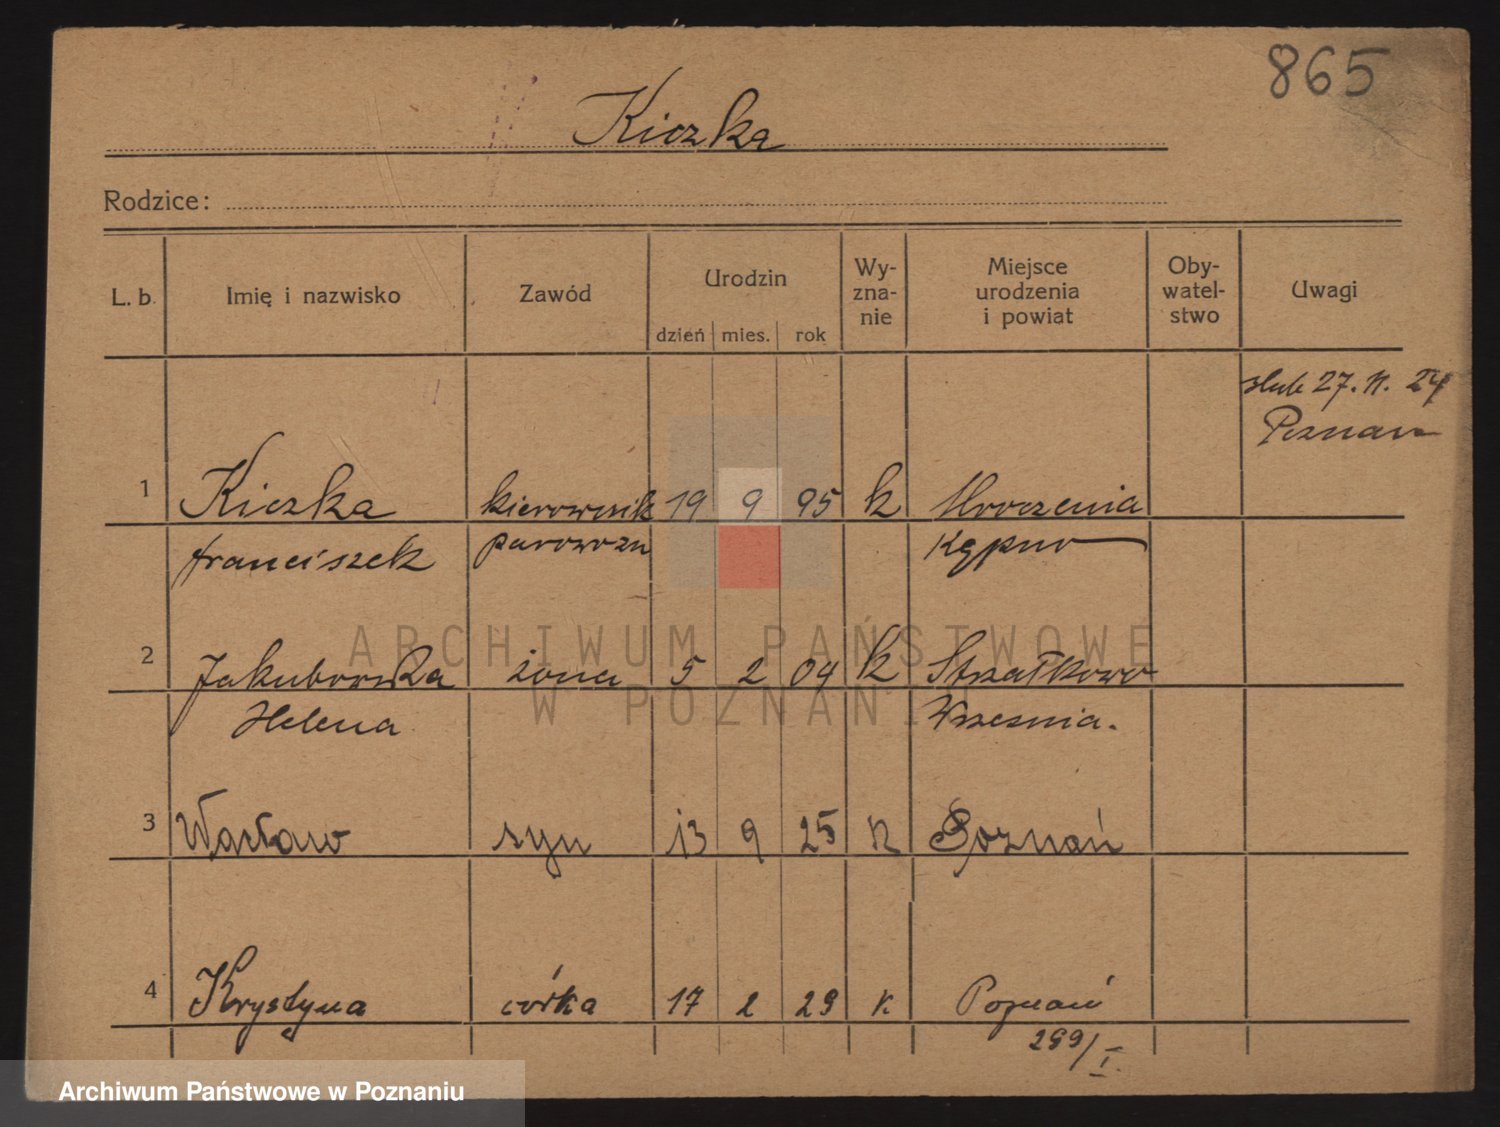 865
Kiczka
Rodzice:
L. b.
Imię i nazwisko
Zawód
Urodzin
dzień mies. rok
Wy-
zna-
nie
Miejsce
urodzenia
i powiat
Oby-
watel-
stwo
Uwagi
27. 24
Poznań
1 Kiczka kierownik 19 9 95 k Mroczenia
Franciszek parowozu Kępno
2 Jakubowska żona 5 2 04 k Strzałkowo
Helena Wrzesnia.
3 Wacław syn 13 9 25 k Poznań
4 Krystyna córka 17 2 29 k Poznań
299/I.
ARCHIWUM PAŃSTWOWE
W POZNANIU
Archiwum Państwowe w Poznaniu